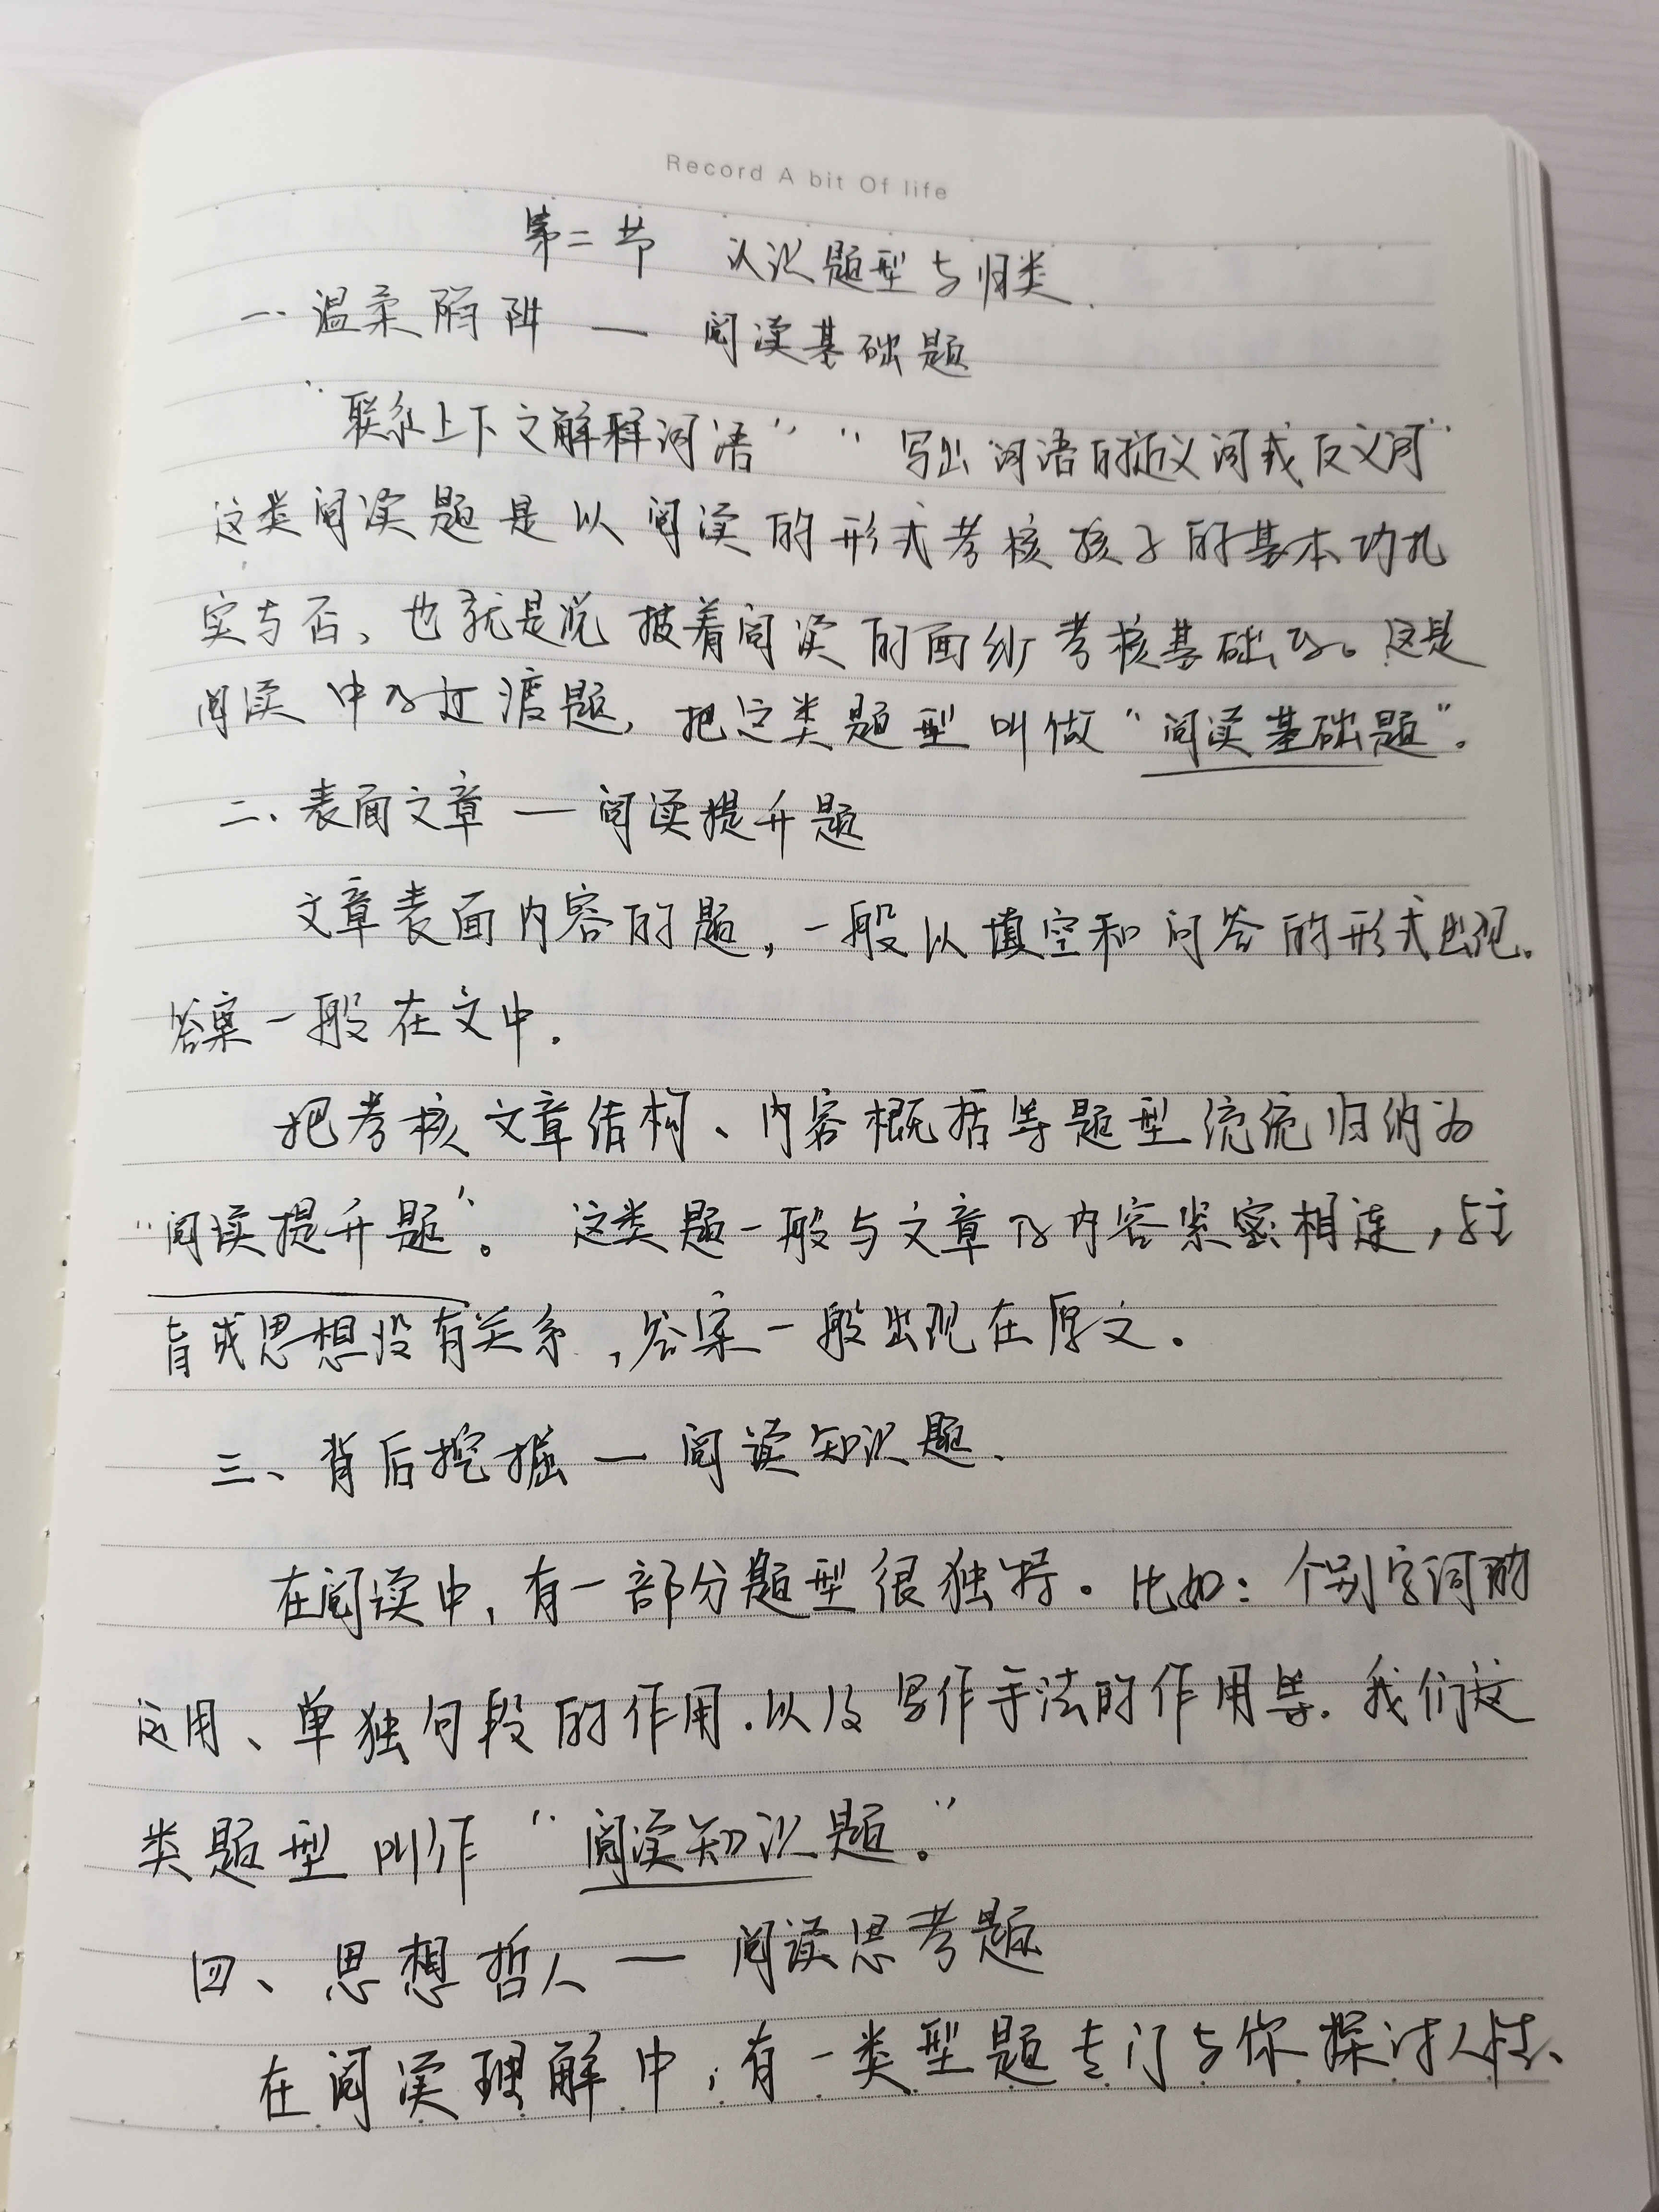 Record A bit Of life
第二节 认识题型与归类.
一. 温柔陷阱 — 阅读基础题
“联系上下文解释词语” “写出词语的近义词或反义词”
这类阅读题是以阅读的形式考核孩子的基本功扎
实与否、也就是说披着阅读的面纱考核基础的。这是
阅读中的过渡题, 把这类题型叫做“阅读基础题”.
二. 表面文章 — 阅读提升题
文章表面内容的题, 一般以填空和问答的形式出现.
答案一般在文中.
把考核文章结构、内容概括等题型统统归纳为
“阅读提升题”。 这类题一般与文章的内容紧密相连, 与主
旨或思想没有关系, 答案一般出现在原文.
三、背后挖掘 — 阅读知识题.
在阅读中, 有一部分题型很独特. 比如: 个别字词的
运用、单独句段的作用. 以及写作手法的作用等. 我们这
类题型叫作“阅读知识题.”
四、思想哲人 — 阅读思考题
在阅读理解中, 有一类型题专门与你探讨人性、